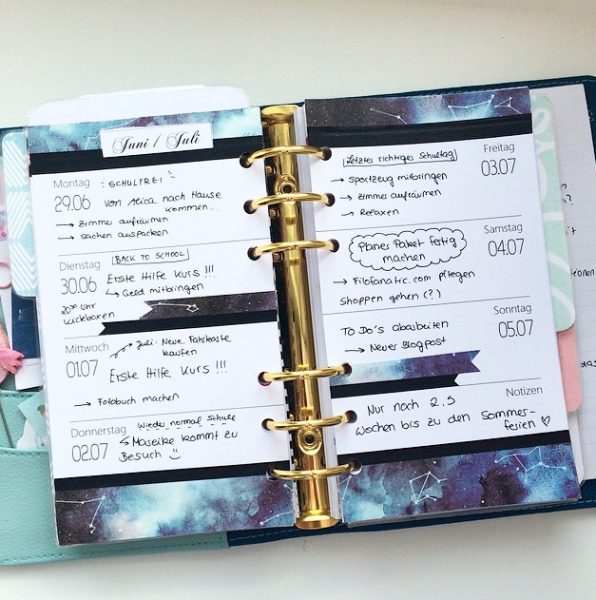 Juni / Juli
Montag
29.06
: SCHULFREI :
Von Mica nach Hause
kommen...
→ Zimmer aufräumen
→ Sachen auspacken
Dienstag
30.06
BACK TO SCHOOL
Erste Hilfe Kurs !!!
↳ Geld mitbringen
20:00 Uhr
Kickboxen
Mittwoch
01.07
Juli: Neue Fahrkarte
kaufen
Erste Hilfe Kurs !!!
→ Fotobuch machen
Donnerstag
02.07
Wieder normal Schule
↳ Mareike kommt zu
Besuch
Freitag
03.07
Letztes richtiges Schultag
→ Sportzeug mitbringen
→ Zimmer aufräumen
→ Relaxen
Samstag
04.07
Planer Paket fertig
machen
→ Filofanatic.com pflegen
shoppen gehen (?)
Sonntag
05.07
To Do's abarbeiten
→ Neuer Blogpost
Notizen
Nur noch 2,5
Wochen bis zu den Sommer-
ferien ♡